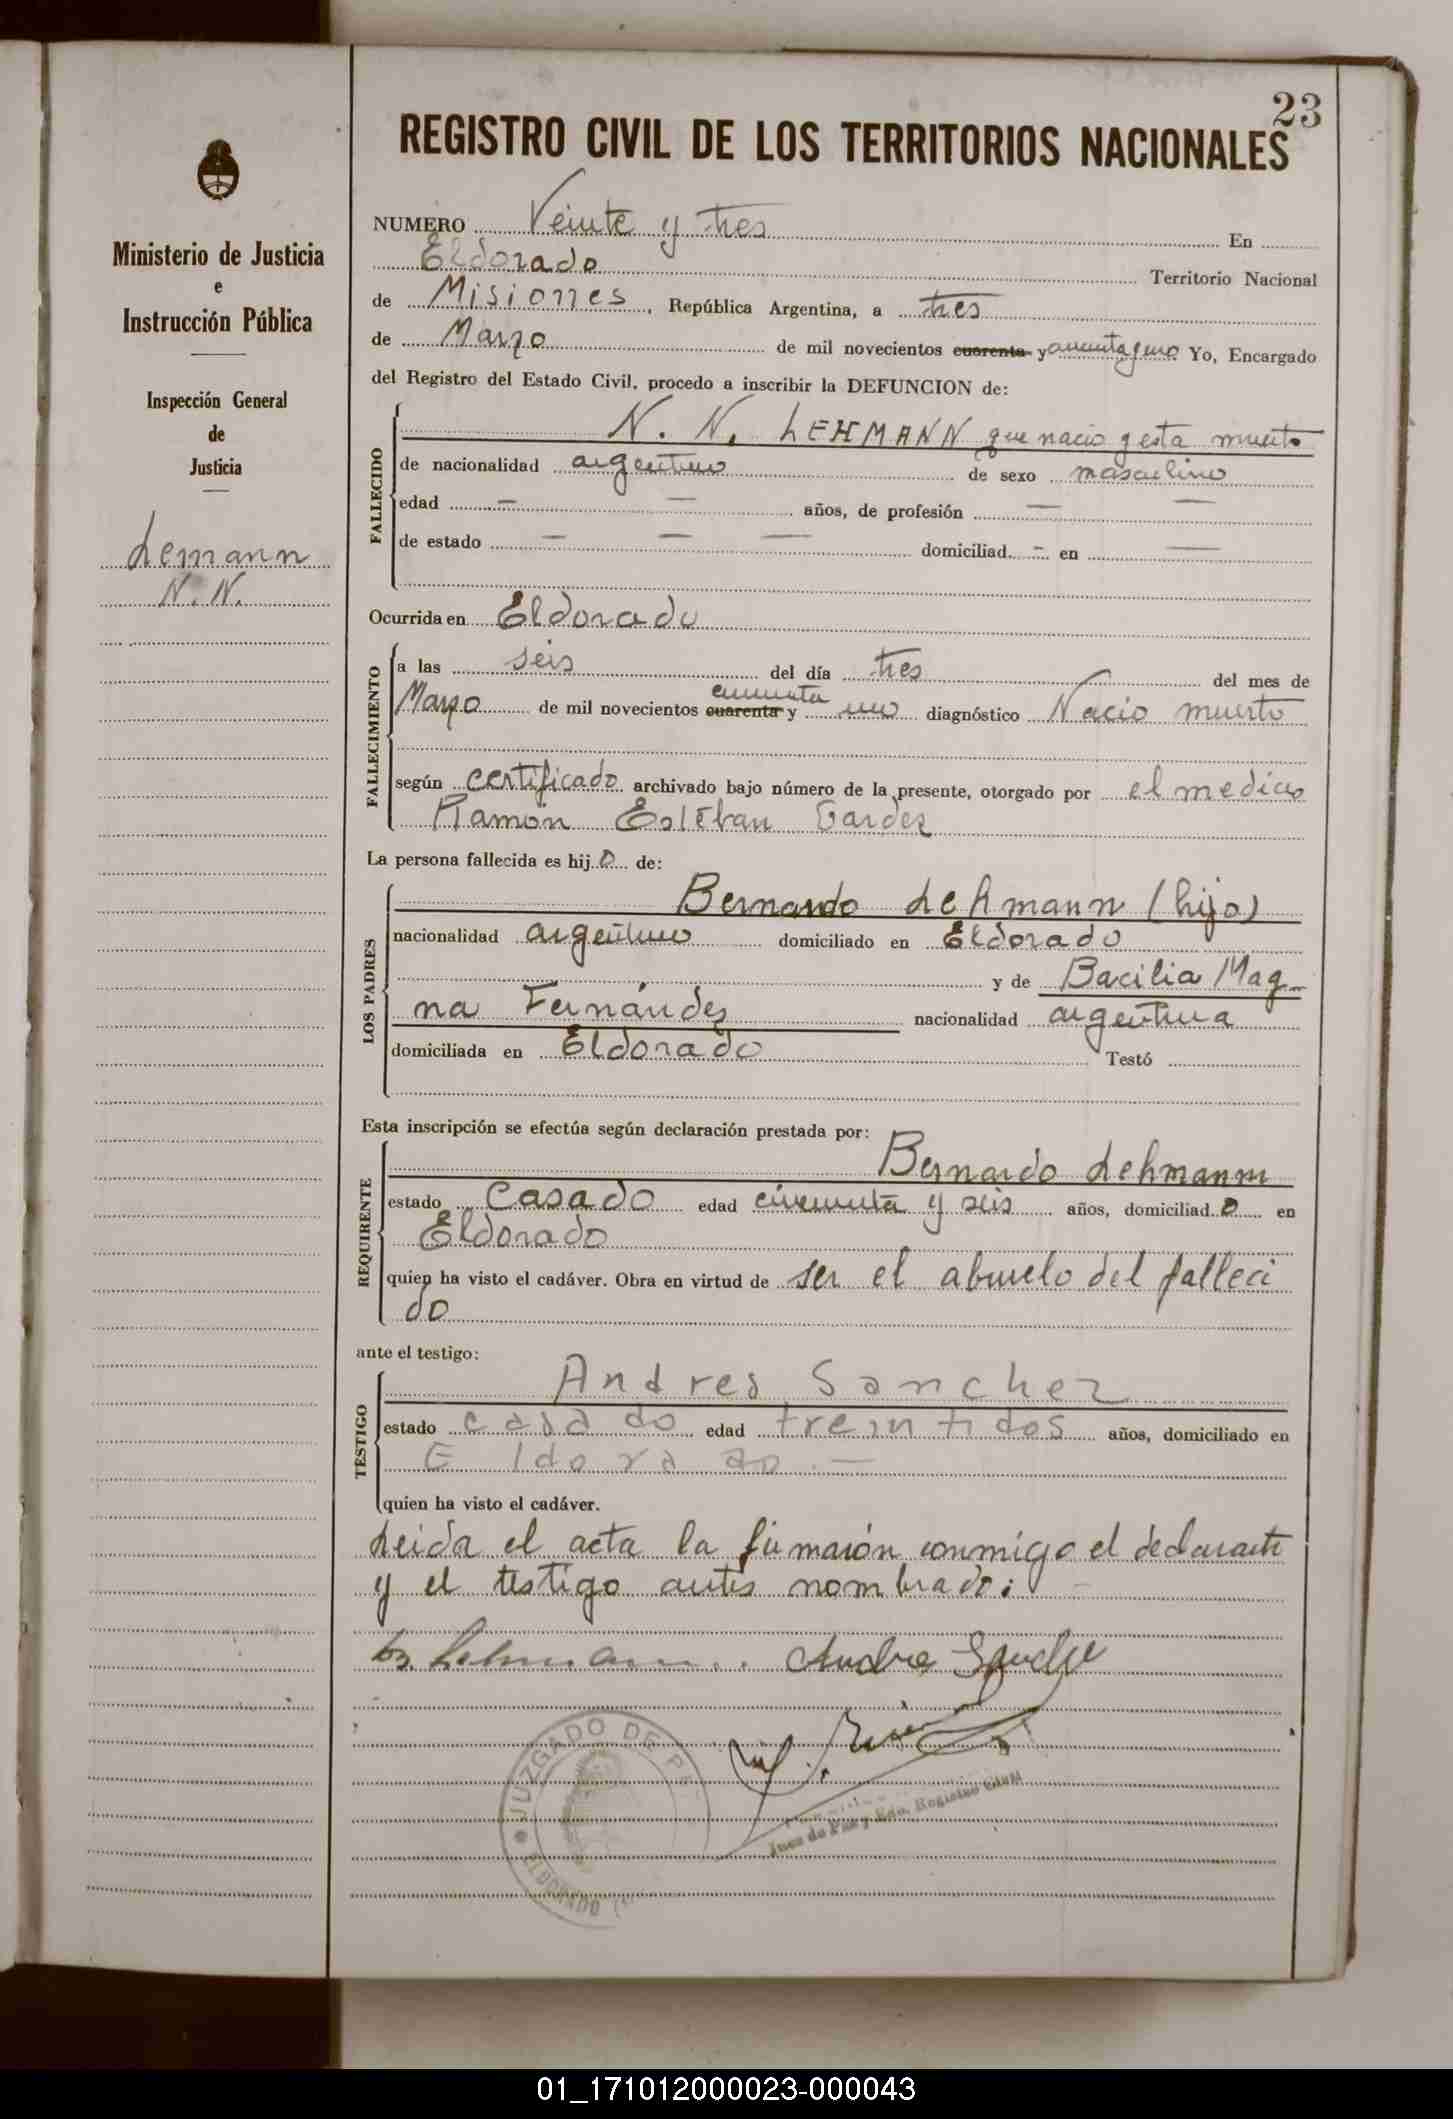 23
REGISTRO CIVIL DE LOS TERRITORIOS NACIONALES
Ministerio de Justicia
e
Instrucción Pública
Inspección General
de
Justicia
Lemann
N. N.
NUMERO Veinte y tres En
Eldorado Territorio Nacional
de Misiones, República Argentina, a tres
de Marzo de mil novecientos cuarenta y cincuenta y uno Yo, Encargado
del Registro del Estado Civil, procedo a inscribir la DEFUNCION de:
FALLECIDO
N. N. LEHMANN que nacio y esta muerto
de nacionalidad argentino de sexo masculino
edad — — años, de profesión — —
de estado — — — domiciliad - en —
Ocurrida en Eldorado
FALLECIMIENTO
a las seis del día tres del mes de
cincuenta
Marzo de mil novecientos cuarenta y uno diagnóstico Nacio muerto
según certificado archivado bajo número de la presente, otorgado por el medico
Ramón Esteban
La persona fallecida es hijo de:
LOS PADRES
Bernardo Lehmann (hijo)
nacionalidad argentino domiciliado en Eldorado
y de Bacilia Mag-
na Fernández nacionalidad argentina
domiciliada en Eldorado Testó
Esta inscripción se efectúa según declaración prestada por:
REQUIRENTE
Bernardo Lehmann
estado Casado edad cincuenta y seis años, domiciliado en
Eldorado
quien ha visto el cadáver. Obra en virtud de ser el abuelo del falleci
do
ante el testigo:
TESTIGO
Andres Sanchez
estado casado edad treintidos años, domiciliado en
Eldorado.—
quien ha visto el cadáver.
Leida el acta la firmaron conmigo el declarante
y el testigo antes nombrado: —
B. Lehmann Andre Sanche
JUZGADO DE P
ELDORADO
Juez de Paz y Edo. Registro Civil
01_171012000023-000043